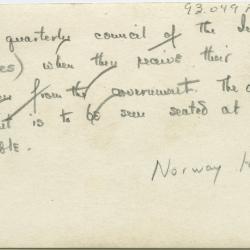 93.049
quarterly council of the
es) when they receive their
from the government. The
is to be seen seated at
ble.
Norway